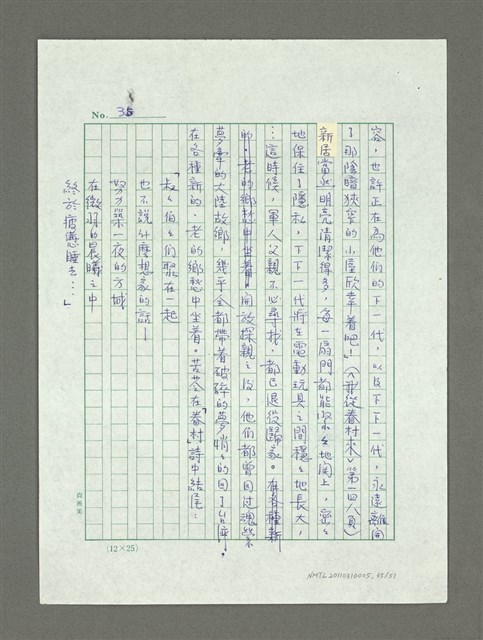 No. 35
容，也許正在為他們的下一代，以及下下一代，永遠離開
了那陰暗狹窄的小屋欣幸着吧！」（〈我從眷村來〉第一四八頁）
新居當然明亮清潔得多，每一扇門都能緊緊地關上，密密
地保住了隱私，下下一代將在電動玩具之間穩穩地長大，
…這時候，軍人父親不必尋找，都已退役歸家。在各種新
的、老的鄉愁中坐着。開放探親之後，他們都曾回過魂縈
夢牽的大陸故鄉，幾乎全都帶着破碎的夢悄悄的回了台灣。
在各種新的、老的鄉愁中坐着。苦苓在「眷村」詩中結尾：
「叔叔伯伯們聚在一起
也不說什麼想家的話—
努力築一夜的方城
在微明的晨曦之中
終於疲憊睡去…」
(12×25)
NMTL20110310005_